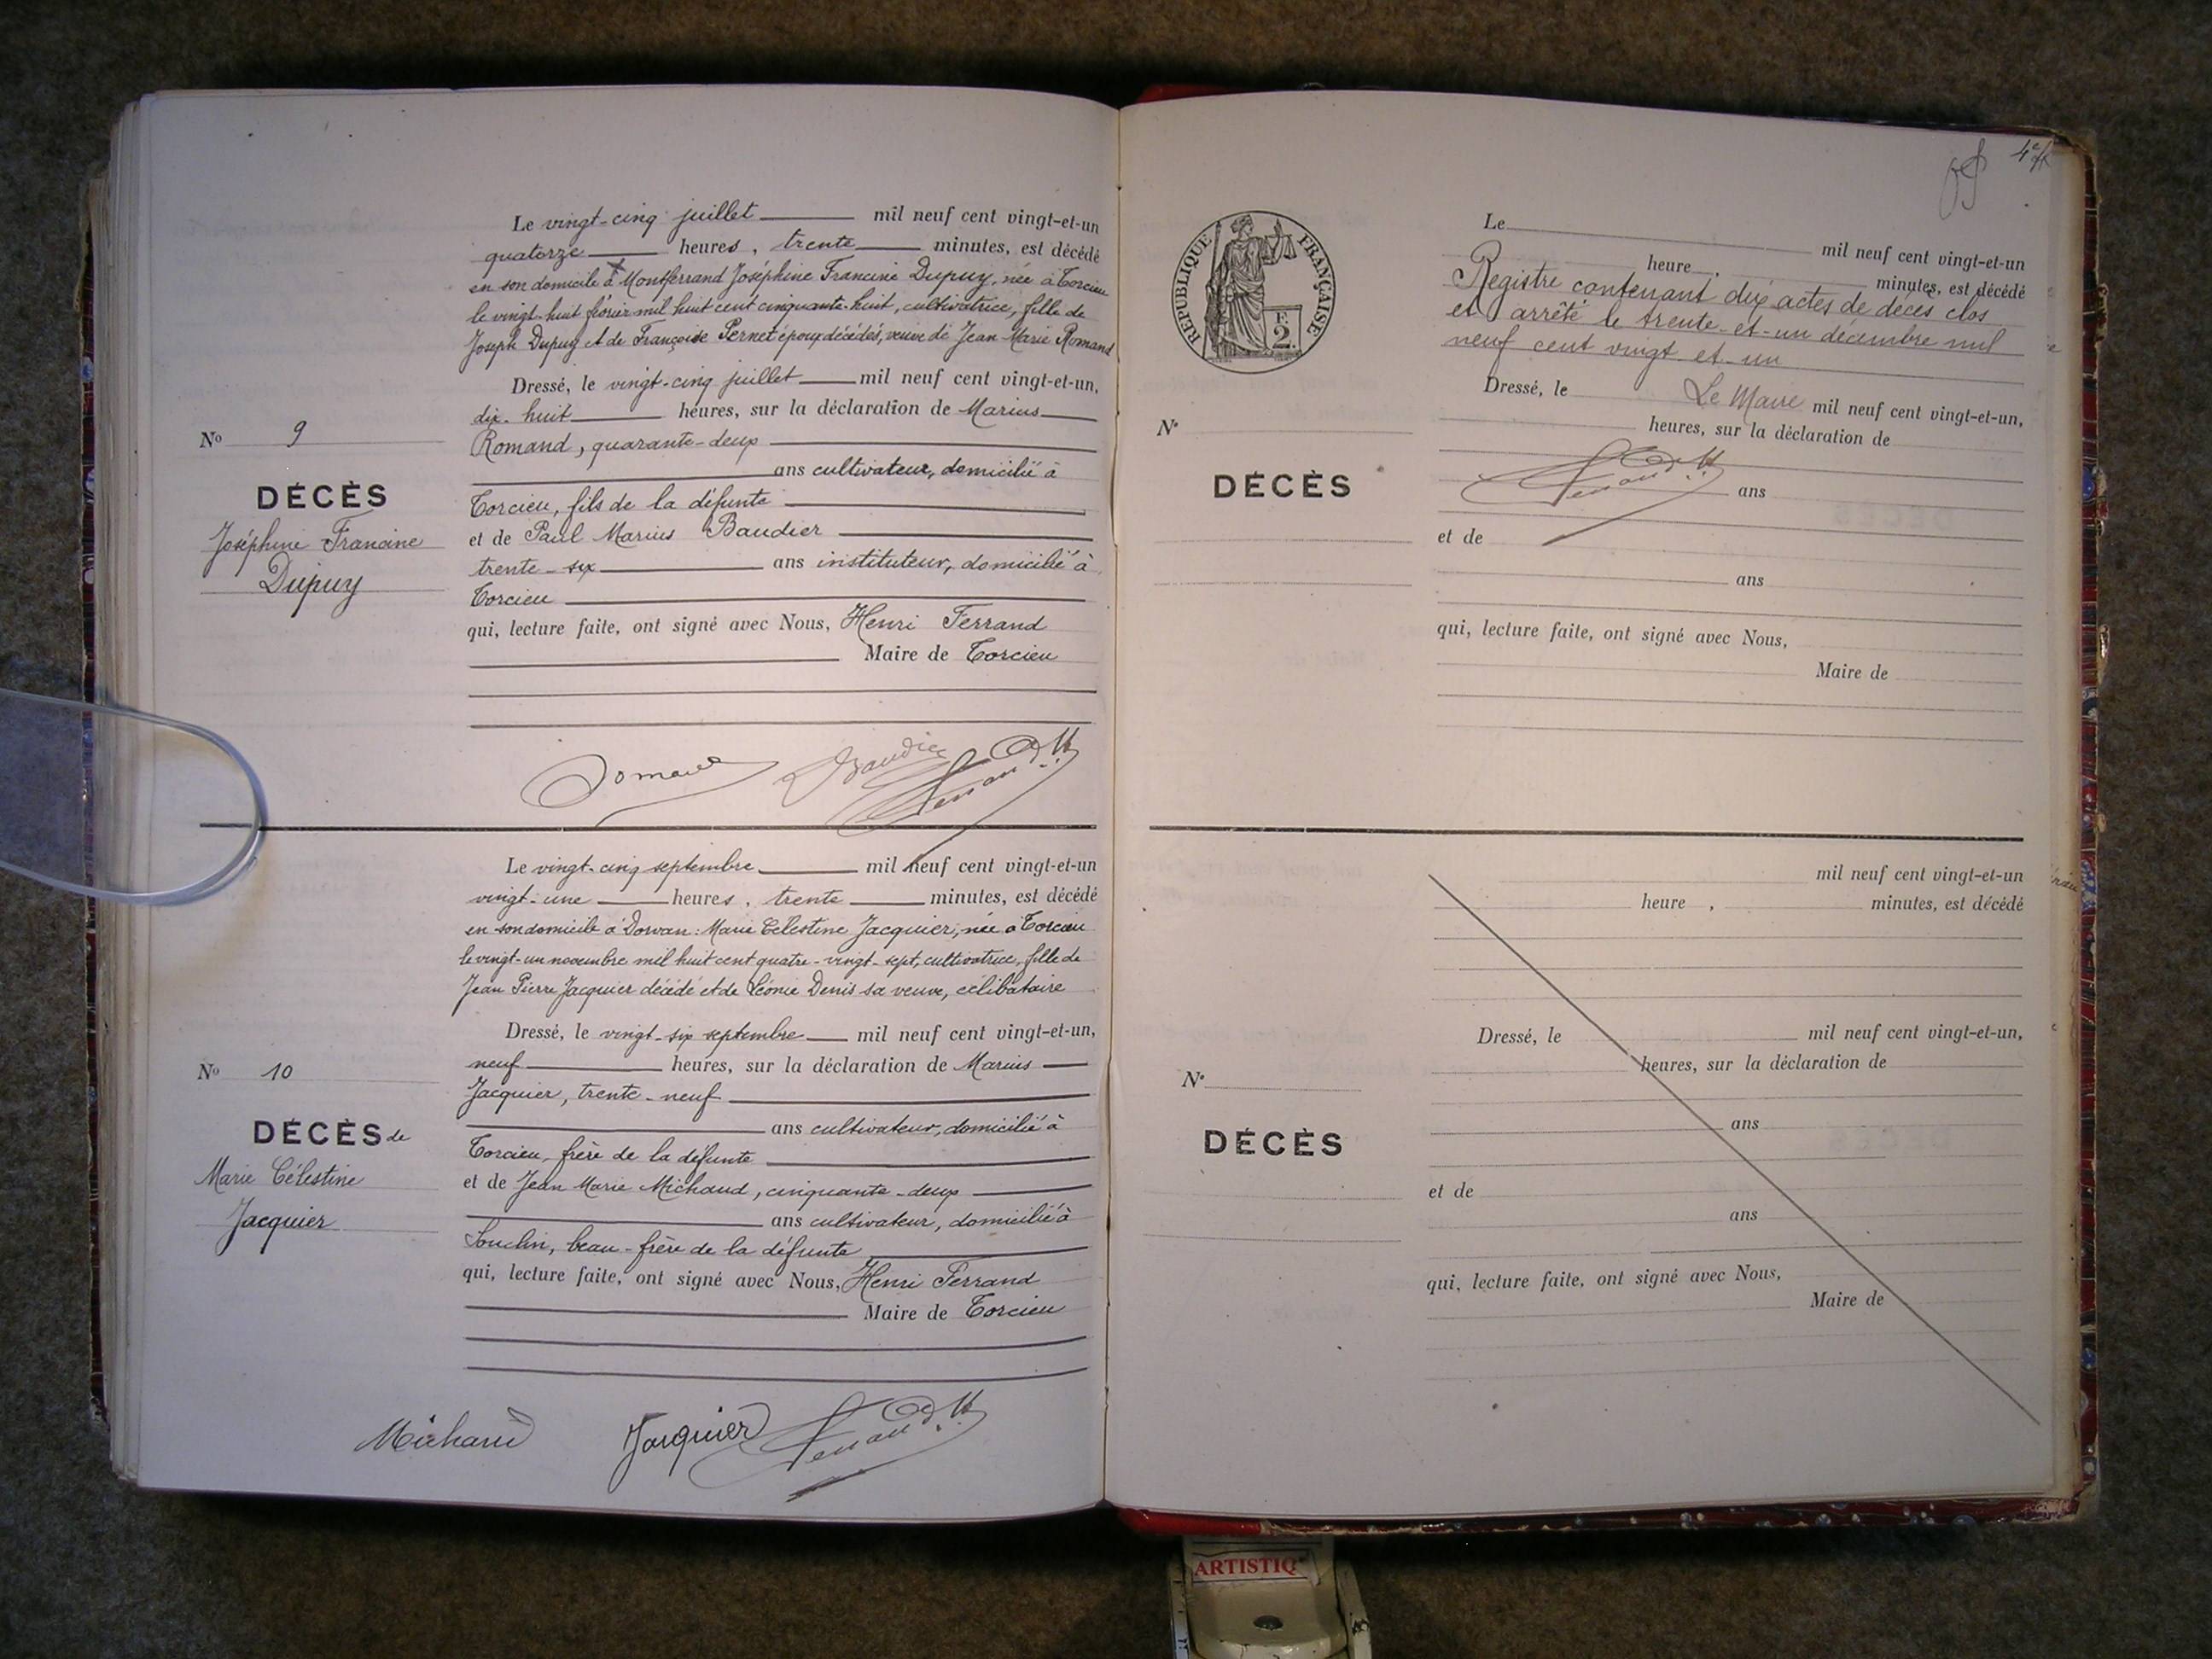 Le vingt-cinq juillet mil neuf cent vingt-et-un
quatorze heures, trente minutes, est décédé
en son domicile à Montferrand Joséphine Francine Dupuy, née à Torcieu
le vingt-huit février mil huit cent cinquante-huit, cultivatrice, fille de
Joseph Dupuy et de Françoise Pernet époux décédés, veuve de Jean Marie Romand
Dressé, le vingt-cinq juillet mil neuf cent vingt-et-un,
dix-huit heures, sur la déclaration de Marius
Romand, quarante-deux
ans cultivateur, domicilié à
Torcieu, fils de la défunte
et de Paul Marius Baudier
trente-six ans instituteur, domicilié à
Torcieu
qui, lecture faite, ont signé avec Nous, Henri Ferrand
Maire de Torcieu
No 9
DÉCÈS
Joséphine Francine
Dupuy
Romand Baudier Ferrand
Le vingt-cinq septembre mil neuf cent vingt-et-un
vingt-une heures, trente minutes, est décédé
en son domicile à Dorvan: Marie Célestine Jacquier, née à Torcieu
le vingt-un novembre mil huit cent quatre-vingt-sept, cultivatrice, fille de
Jean Pierre Jacquier décédé et de Léonie Denis sa veuve, célibataire
Dressé, le vingt-six septembre mil neuf cent vingt-et-un,
neuf heures, sur la déclaration de Marius
Jacquier, trente-neuf
ans cultivateur, domicilié à
Torcieu, frère de la défunte
et de Jean Marie Michaud, cinquante-deux
ans cultivateur, domicilié à
Souclin, beau-frère de la défunte
qui, lecture faite, ont signé avec Nous, Henri Ferrand
Maire de Torcieu
No 10
DÉCÈS de
Marie Célestine
Jacquier
Michaud Jacquier Ferrand
RÉPUBLIQUE FRANÇAISE
F.
2.
Le mil neuf cent vingt-et-un
heure, minutes, est décédé
Registre contenant dix actes de décès clos
et arrêté le trente-et-un décembre mil
neuf cent vingt et un
Dressé, le Le Maire mil neuf cent vingt-et-un,
heures, sur la déclaration de
Ferrand
ans
et de
ans
qui, lecture faite, ont signé avec Nous,
Maire de
No
DÉCÈS
mil neuf cent vingt-et-un
heure, minutes, est décédé
Dressé, le mil neuf cent vingt-et-un,
heures, sur la déclaration de
ans
et de
ans
qui, lecture faite, ont signé avec Nous,
Maire de
No
DÉCÈS
ARTISTIQ